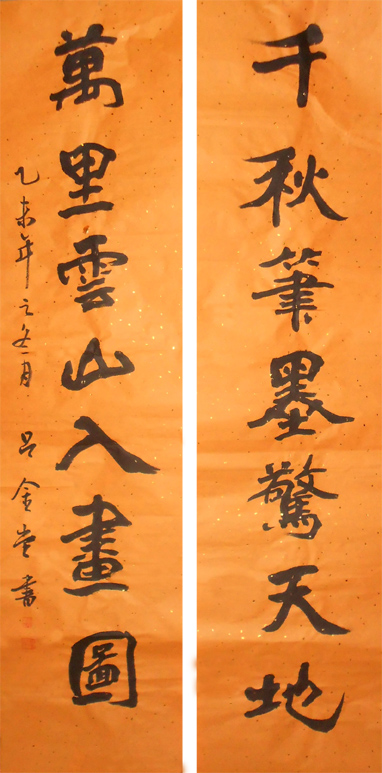 千秋筆墨驚天地
萬里雲山入畫圖
乙未年之冬月 呂金堂書